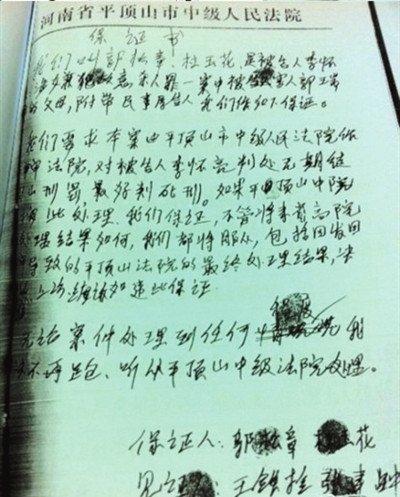 河南省平顶山市中级人民法院
保证书
我们叫郭松章、杜玉花,是被告人李怀
亮 犯故意杀人罪一案中被害人郭
的父母,附带民事原告人 我们作如下保证。
我们要求本案由平顶山市中级人民法院作
审法院,对被告人李怀亮判处无期徒
刑,最好判死刑。如果平顶山中院
此处理,我们保证,不管将来高院
处理结果如何,我们都将服从,包括因发回
导致的平顶山法院的最终处理结果,决
上访
如违此保证
无论案件处理到任何 我
们不再上访、听从平顶山中级法院处理。
保证人: 郭松章 杜玉花
见证人: 王铁拴